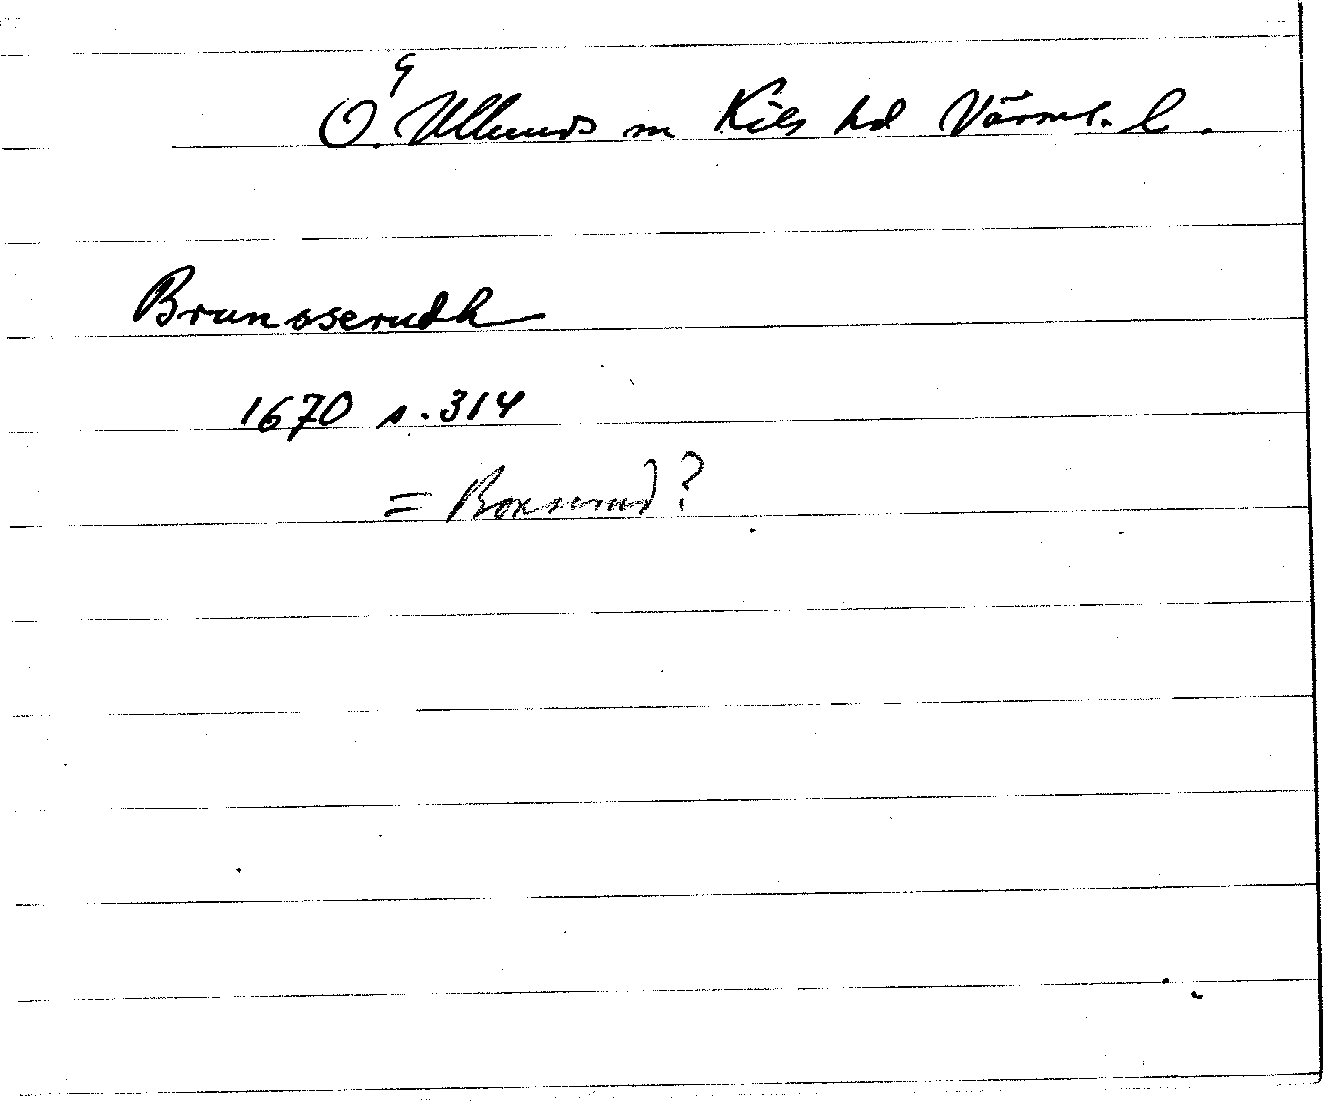 Ö. Ullerud sn Kils hd Värml. l.
Brunsserudh
1670 s. 314
= Borserud?